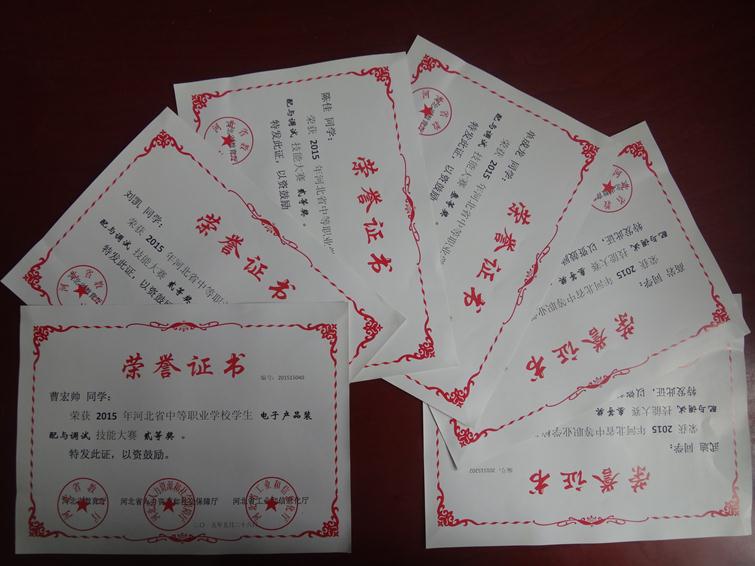 荣誉证书
编号：201515040
曹宏帅 同学：
荣获 2015 年河北省中等职业学校学生 电子产品装
配与调试 技能大赛 贰等奖 。
特发此证，以资鼓励。
河北省教育厅 河北省人力资源和社会保障厅 河北省工业和信息化厅
二〇一五年五月二十六日
荣誉证书
刘凯 同学：
荣获 2015 年河北省中等职
配与调试 技能大赛 贰等奖
特发此证，以资鼓励
荣誉证书
陈佳 同学：
荣获 2015 年河北省中等职业
配与调试 技能大赛 贰等奖 。
特发此证，以资鼓励
荣誉证书
同学：
荣获 2015 年河北省中等职业
配与调试 技能大赛 叁等奖
特发此证，以资鼓励
荣誉证书
同学：
荣获 2015 年河北省中等职业
配与调试 技能大赛 叁等奖
特发此证，以资鼓励
荣誉证书
编号：201515202
武迪 同学：
荣获 2015 年河北省中等职业学校
配与调试 技能大赛 叁等奖
特发此证，以资